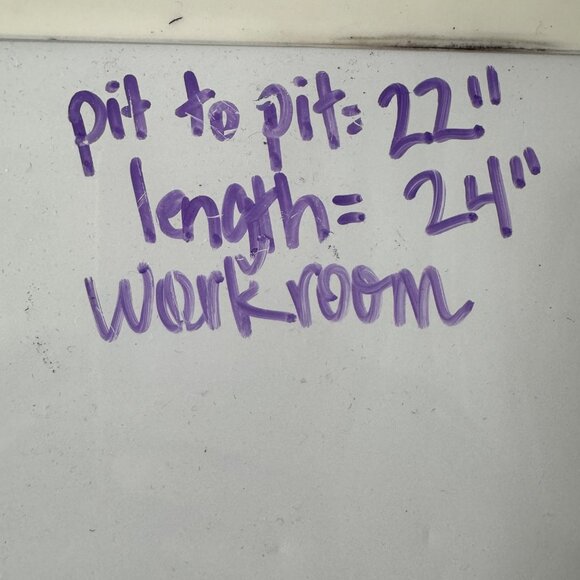 pit to pit: 22"
length= 24"
workroom